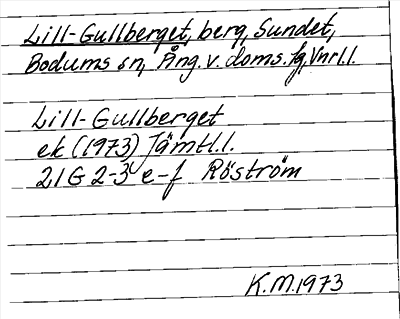 Lill-Gullberget, berg, Sundet,
Bodums sn, Ång. v. doms. fg, Vnrl.l.
Lill-Gullberget
ek (1973) Jämtl.l.
21G 2-3 e-f Röström
K.M.1973